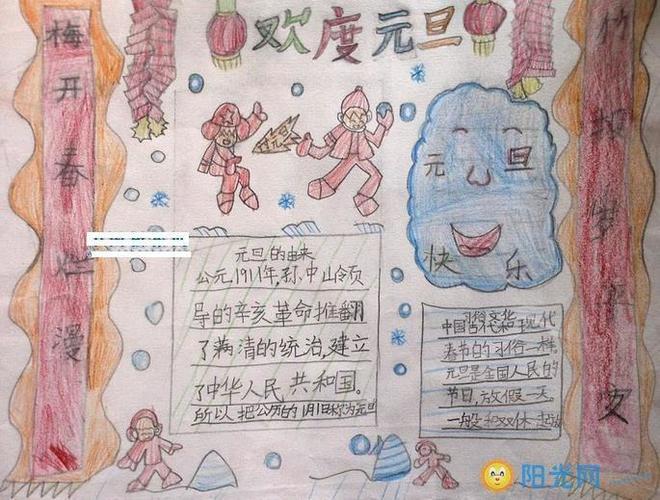 欢度元旦
梅开春烂漫
竹报平安
元旦
快乐
元旦的由来
公元1911年,孙中山领
导的辛亥革命推翻
了满清的统治,建立
了中华人民共和国。
所以把公历的1月1日称为元旦
习俗文化
中国当代和现代
春节的习俗一样.
元旦是全国人民的
节日,放假一天。
一般和双休
阳光网